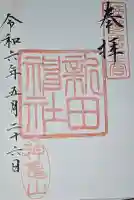 奉拝
新田
神社
令和六年五月二十六日